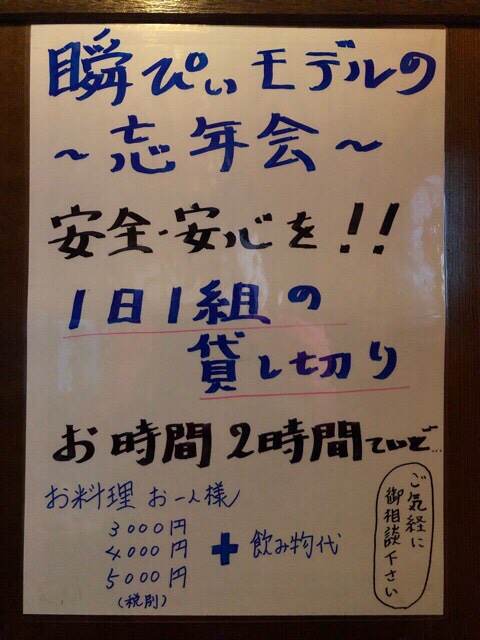 瞬ぴぃモデルの
～忘年会～
安全・安心を!!
1日1組の
貸し切り
お時間2時間ていど…
お料理 お一人様
3000円
4000円
5000円
(税別)
+ 飲み物代
ご気経に
御相談下さい